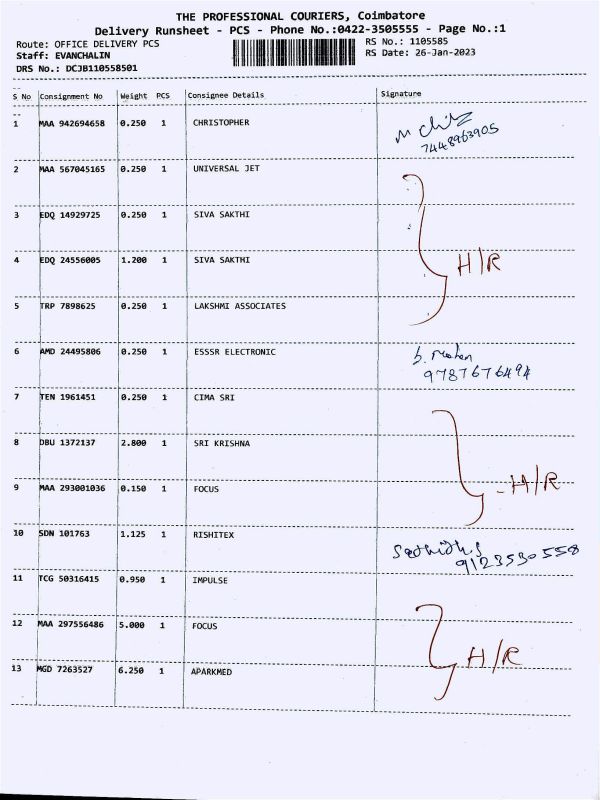 THE PROFESSIONAL COURIERS, Coimbatore
Delivery Runsheet - PCS - Phone No.:0422-3505555 - Page No.:1
Route: OFFICE DELIVERY PCS RS No.: 1105585
Staff: EVANCHALIN RS Date: 26-Jan-2023
DRS No.: DCJB110558501
S No Consignment No Weight PCS Consignee Details Signature
1 MAA 942694658 0.250 1 CHRISTOPHER
7448963905
2 MAA 567045165 0.250 1 UNIVERSAL JET
3 EDQ 14929725 0.250 1 SIVA SAKTHI
4 EDQ 24556005 1.200 1 SIVA SAKTHI H/R
5 TRP 7898625 0.250 1 LAKSHMI ASSOCIATES
6 AMD 24495806 0.250 1 ESSSR ELECTRONIC
9787676494
7 TEN 1961451 0.250 1 CIMA SRI
8 DBU 1372137 2.800 1 SRI KRISHNA
9 MAA 293001036 0.150 1 FOCUS -H/R
10 SDN 101763 1.125 1 RISHITEX
9123530558
11 TCG 50316415 0.950 1 IMPULSE
12 MAA 297556486 5.000 1 FOCUS
13 MGD 7263527 6.250 1 APARKMED H/R